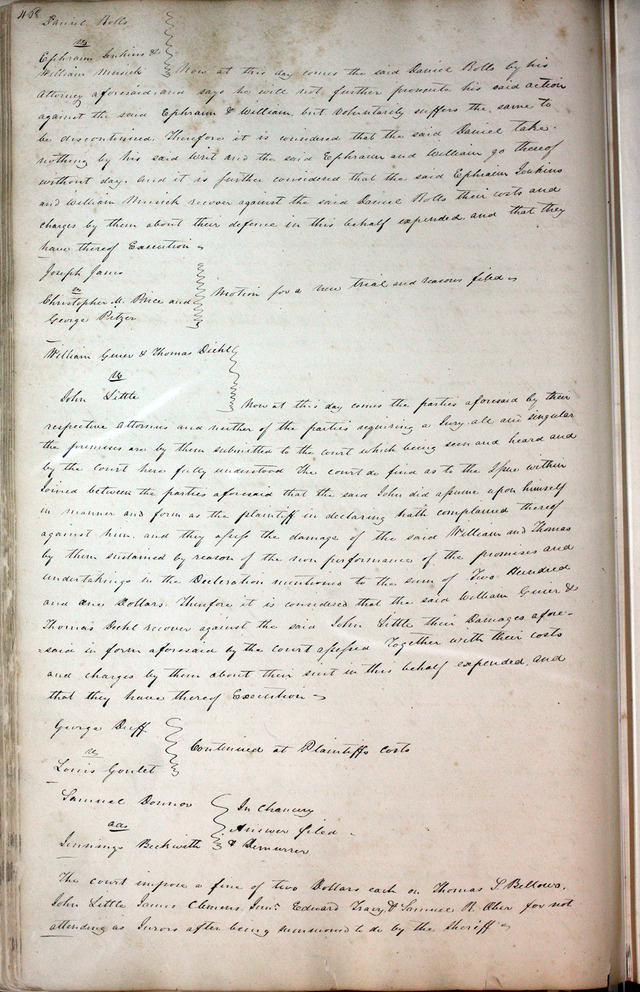 458
Daniel Bolls
vs
Ephraim Jenkins &
William Musick Now at this day comes the said Daniel Bolls by his
Attorney aforesaid and says he will not further prosecute his said action
against the said Ephraim & William, but voluntarily suffers the same to
be discontinued. Therefore it is considered that the said Daniel take
nothing by his said writ and the said Ephraim and William go thereof
without day. And it is further considered that the said Ephraim Jenkins
and William Musick recover against the said Daniel Bolls their costs and
charges by them about their defence in this behalf expended and that they
have thereof Execution
Joseph James
vs
Christopher M. Price and Motion for a new trial and reasons filed
George Pitzer
William Giner & Thomas Diehl
vs
John Little Now at this day comes the parties aforesaid by their
respective attornies and neither of the parties requiring a Jury, all and singular
the premises are by them submitted to the court which being seen and heard and
by the court here fully understood The court do find as to the Issue within
Joined between the parties aforesaid that the said John did assume upon himself
in manner and form as the plaintiff in declaring hath complained thereof
against him. and they assess the damage of the said William and Thomas
by them sustained by reason of the non performance of the promises and
undertakings in the Declaration mentioned to the sum of Two Hundred
and one Dollars. Therefore it is considered that the said William Giner &
Thomas Diehl recover against the said John Little their Damages afore-
said in form aforesaid by the court assessed Together with their costs
and charges by them about their suit in this behalf expended, and
that they have thereof Execution
George Duff
vs Continued at Plaintiffs costs
Louis Goulet
Samuel Donnov In Chancery
ads Answer filed
Jennings Beckwith & Demurrer
The court impose a fine of two Dollars each on Thomas S. Bellows,
John Little James Clemens, Junr. Edward Tracy & Samuel R. Ober for not
attending as Jurors after being summoned to do by the Sheriff